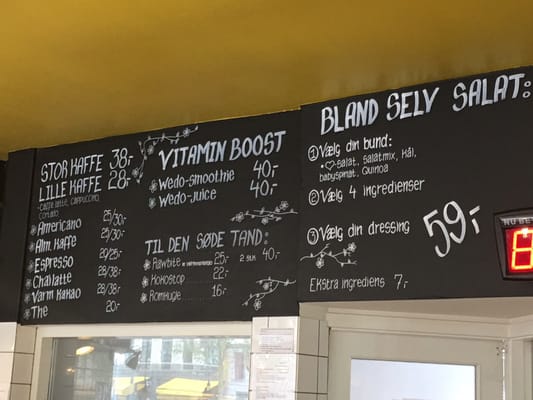 STOR KAFFE 38,-
LILLE KAFFE 28,-
Caffe latte, cappuccino,
cortado
Americano 25/30,-
Alm. kaffe 25/30,-
Espresso 20/25
Chai latte 28/38
Varm Kakao 28/38,-
The 20,-
VITAMIN BOOST
Wedo-smoothie 40,-
Wedo-juice 40,-
TIL DEN SØDE TAND:
Rawbite 25,- 2 stk 40,-
Kokostop 22,-
Romkugle 16,-
BLAND SELV SALAT:
① Vælg din bund:
♡salat, salatmix, kål,
babyspinat, Quinoa
② Vælg 4 ingredienser
③ Vælg din dressing
59,-
Ekstra ingrediens 7,-
NU BE
8